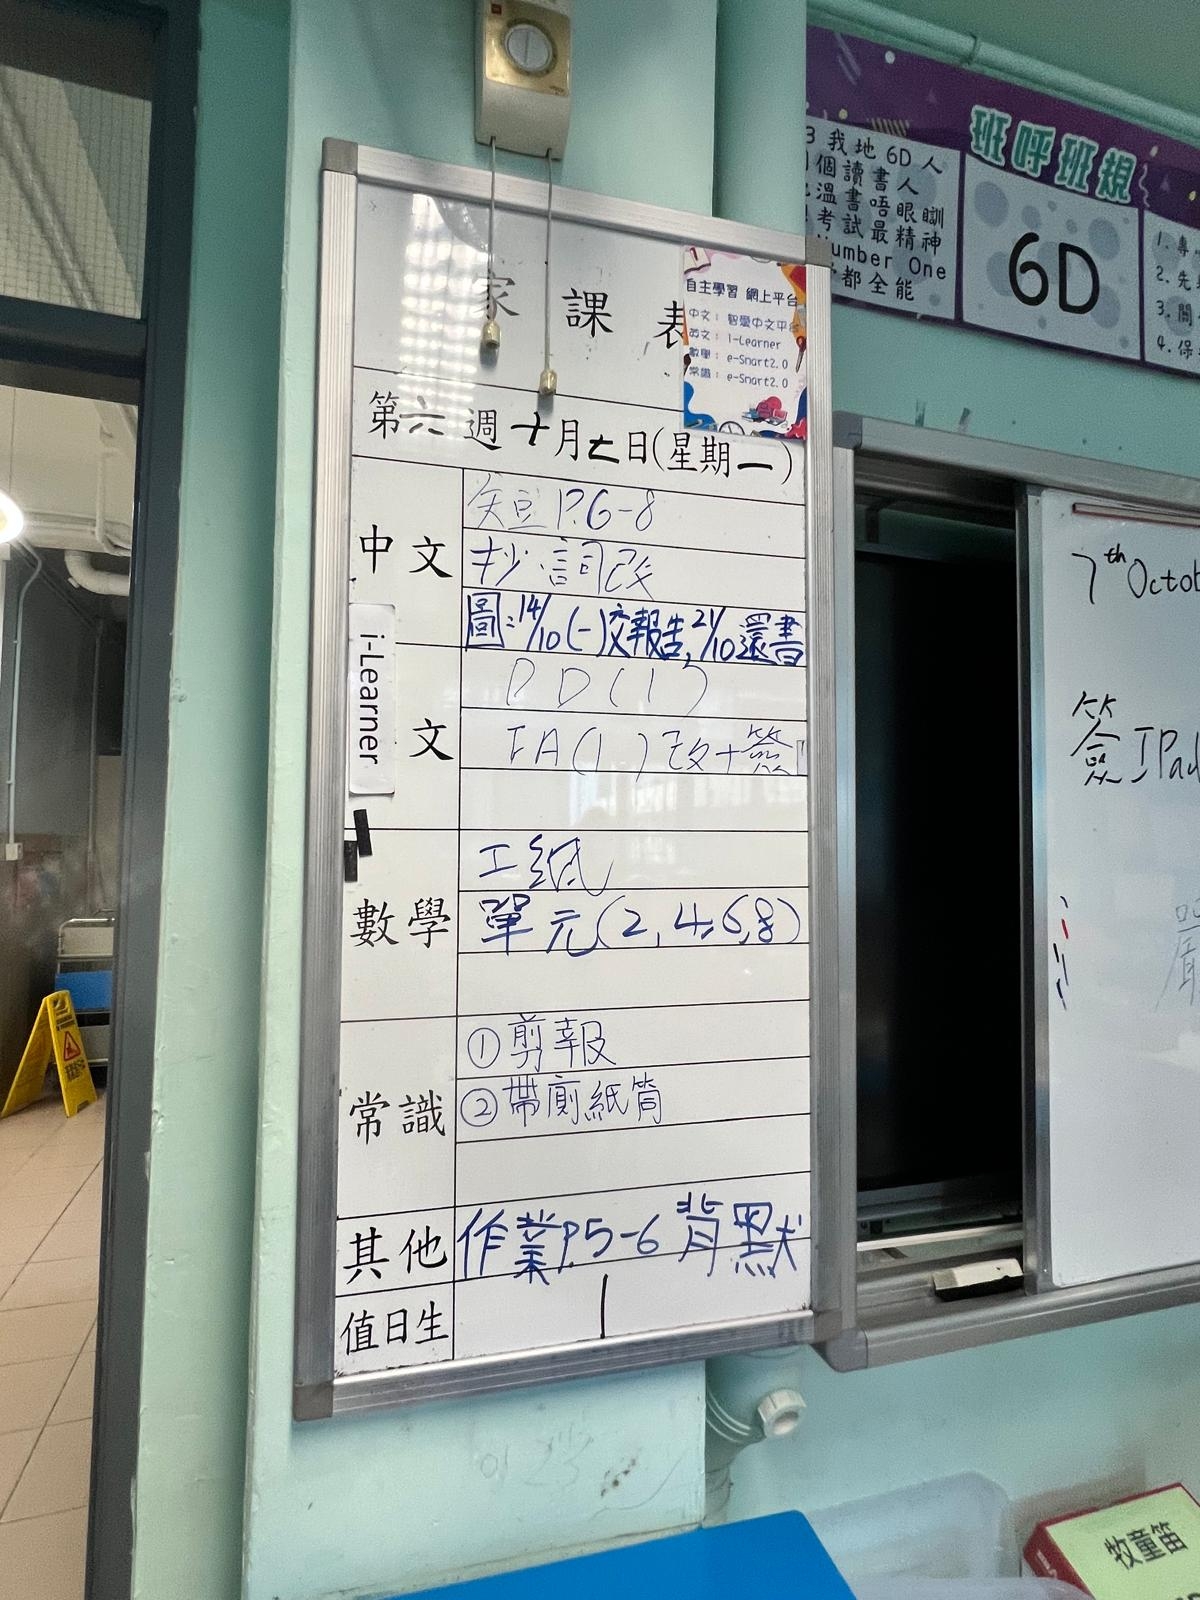 家課表
自主學習 網上平台
中文：智愛中文平台
英文：i-Learner
數學：e-Smart2.0
常識：e-Smart2.0
第六週十月七日(星期一)
中文
短P.6-8
抄詞改
圖:14/10(一)交報告,21/10還書
i-Learner
文
DD(1)
IA(1)改+簽
數學
工紙
單元(2,4,6,8)
常識
①剪報
②帶廁紙筒
其他
作業P.5-6 背默
值日生
班呼班規
我地6D人
個讀書人
溫書唔眼瞓
考試最精神
Number One
都全能
6D
1.
2.先
3.
4.保
7th Octob
簽IPad
牧童笛